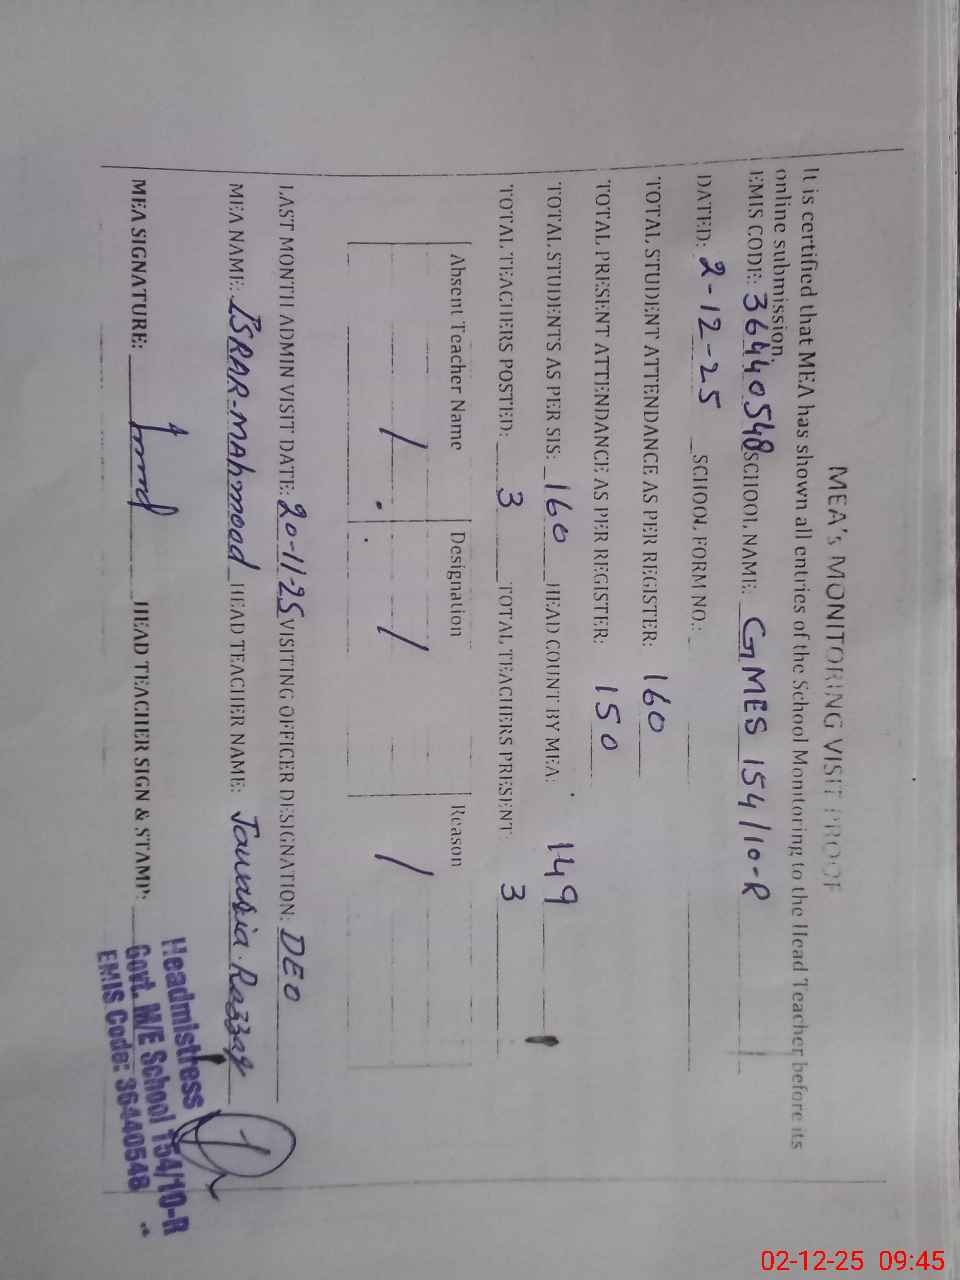 MEA's MONITORING VISIT PROOF
It is certified that MEA has shown all entries of the School Monitoring to the Head Teacher before its
online submission.
EMIS CODE: 36440548 SCHOOL NAME: GMES 154/10-R
DATED: 2-12-25 SCHOOL FORM NO.:
TOTAL STUDENT ATTENDANCE AS PER REGISTER: 160
TOTAL PRESENT ATTENDANCE AS PER REGISTER: 150
TOTAL STUDENTS AS PER SIS: 160 HEAD COUNT BY MEA: 149
TOTAL TEACHERS POSTED: 3 TOTAL TEACHERS PRESENT: 3
Absent Teacher Name Designation Reason
/ / /
LAST MONTH ADMIN VISIT DATE: 20-11-25 VISITING OFFICER DESIGNATION: DEO
MEA NAME: ISRAR-MAhmood HEAD TEACHER NAME: Jawaria Razzaq
MEA SIGNATURE: HEAD TEACHER SIGN & STAMP:
Headmistress
Govt. M/E School 154/10-R
EMIS Code: 36440548
02-12-25 09:45